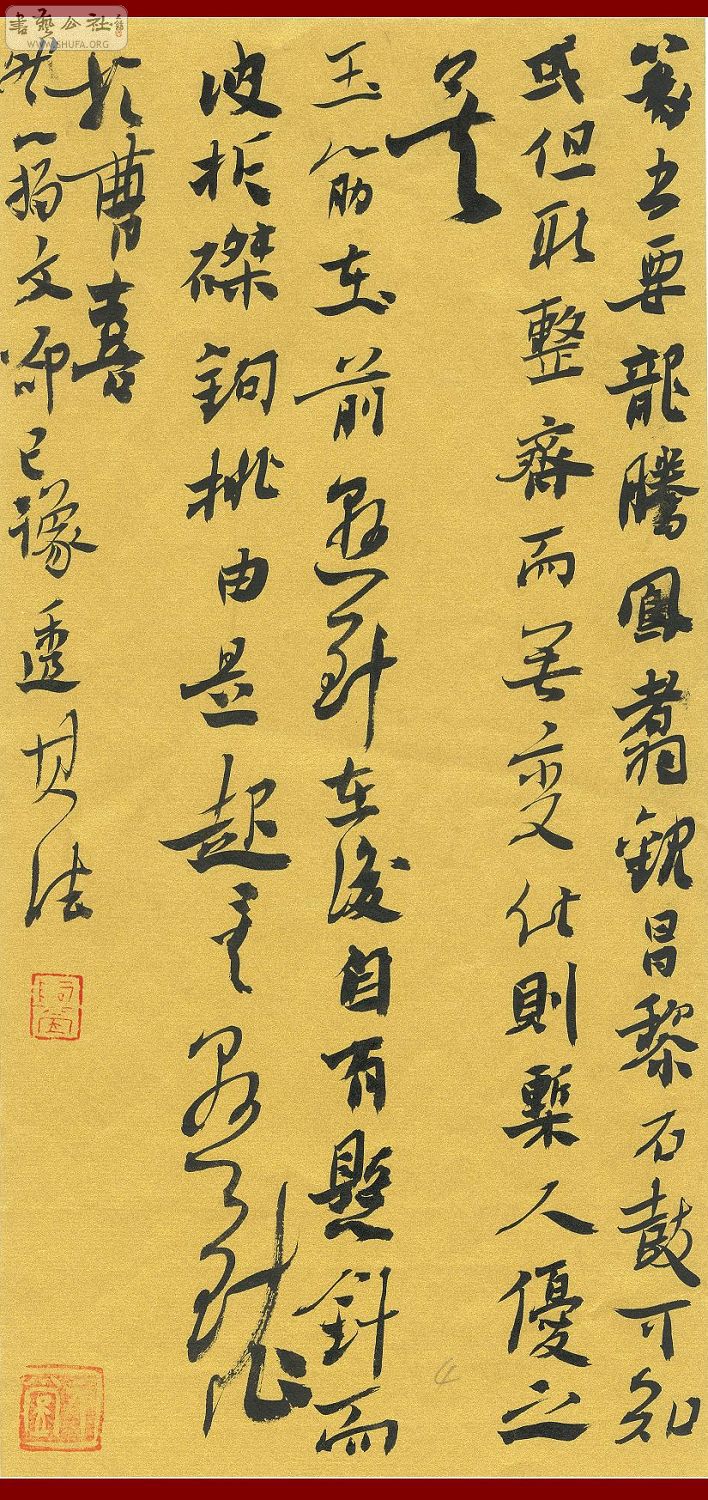 書藝公社
WWW.SHUFA.ORG
篆书要龍騰鳳翥觀昌黎石鼓可知
或但取整齊而無变化則槧人優之
矣
玉筋在前懸針在後自有懸針而
波折磔鉤挑由是起矣懸針作
於曹喜
然籀文卻已豫透其法